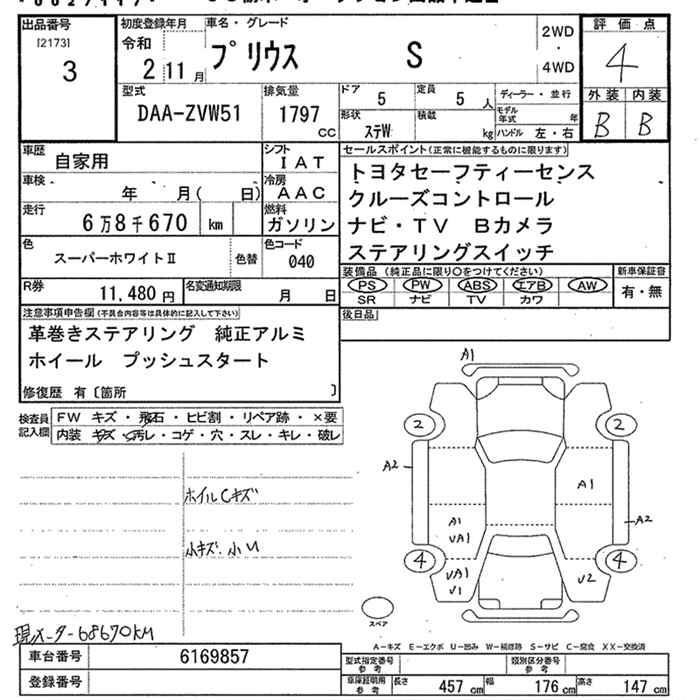 出品番号
[2173]
3
初度登録年月
令和
2 11 月
車名・グレード
プリウス S
2WD
・
4WD
評価点
4
外装 内装
B B
型式
DAA-ZVW51
排気量
1797
cc
ドア
5
定員
5 人
ディーラー・並行
モデル年式 年
形状
ステW
積載
kg
ハンドル 左・右
車歴
自家用
シフト
IAT
セールスポイント(正常に機能するものに限ります)
トヨタセーフティーセンス
クルーズコントロール
ナビ・TV Bカメラ
ステアリングスイッチ
車検
年 月( 日)
冷房
AAC
走行
6万8千670 km
燃料
ガソリン
色
スーパーホワイトⅡ
色替
色コード
040
装備品(純正品に限り○をつけてください)
PS PW ABS エアB AW
SR ナビ TV カワ
新車保証書
有・無
R券
11,480 円
名変通知期限
月 日
後日品
注意事項申告欄(不具合内容等は具体的に記入して下さい)
革巻きステアリング 純正アルミ
ホイール プッシュスタート
修復歴 有〔箇所 〕
検査員記入欄
FW キズ・飛石・ヒビ割・リペア跡・×要
内装 キズ・汚レ・コゲ・穴・スレ・キレ・破レ
ホイルCキズ
小キズ.小U
現メーター68670KM
A1
2
2
A2
A1
A1
UA1
A2
4
4
UA1
U1
U2
スペア
A-キズ E-エクボ U-凹み W-補修跡 S-サビ C-腐食 XX-交換済
車台番号
6169857
登録番号
型式指定番号
参考
類別区分番号
参考
車庫証明用
参考
長さ 457 cm
幅 176 cm
高さ 147 cm